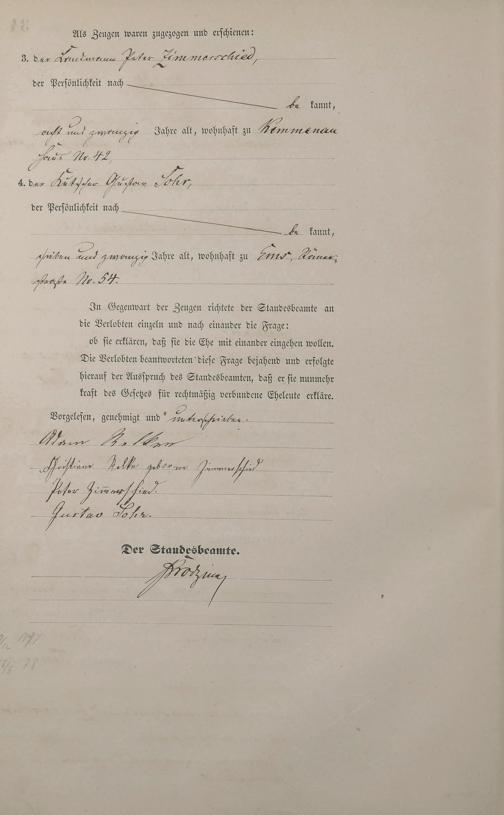 Als Zeugen waren zugezogen und erschienen:
3. der Peter Zimmerschied,
der Persönlichkeit nach
be kannt,
acht und zwanzig Jahre alt, wohnhaft zu Kemmenau
Haus No. 42
4. der Kutscher Gustav Sohr,
der Persönlichkeit nach
be kannt,
sieben und zwanzig Jahre alt, wohnhaft zu Ems, Römer-
straße No. 54.
In Gegenwart der Zeugen richtete der Standesbeamte an
die Verlobten einzeln und nach einander die Frage:
ob sie erklären, daß sie die Ehe mit einander eingehen wollen.
Die Verlobten beantworteten diese Frage bejahend und erfolgte
hierauf der Ausspruch des Standesbeamten, daß er sie nunmehr
kraft des Gesetzes für rechtmäßig verbundene Eheleute erkläre.
Vorgelesen, genehmigt und unterschrieben.
Adam
Christiane geborne Zimmerschied
Peter Zimmerschied.
Gustav Sohr.
Der Standesbeamte.